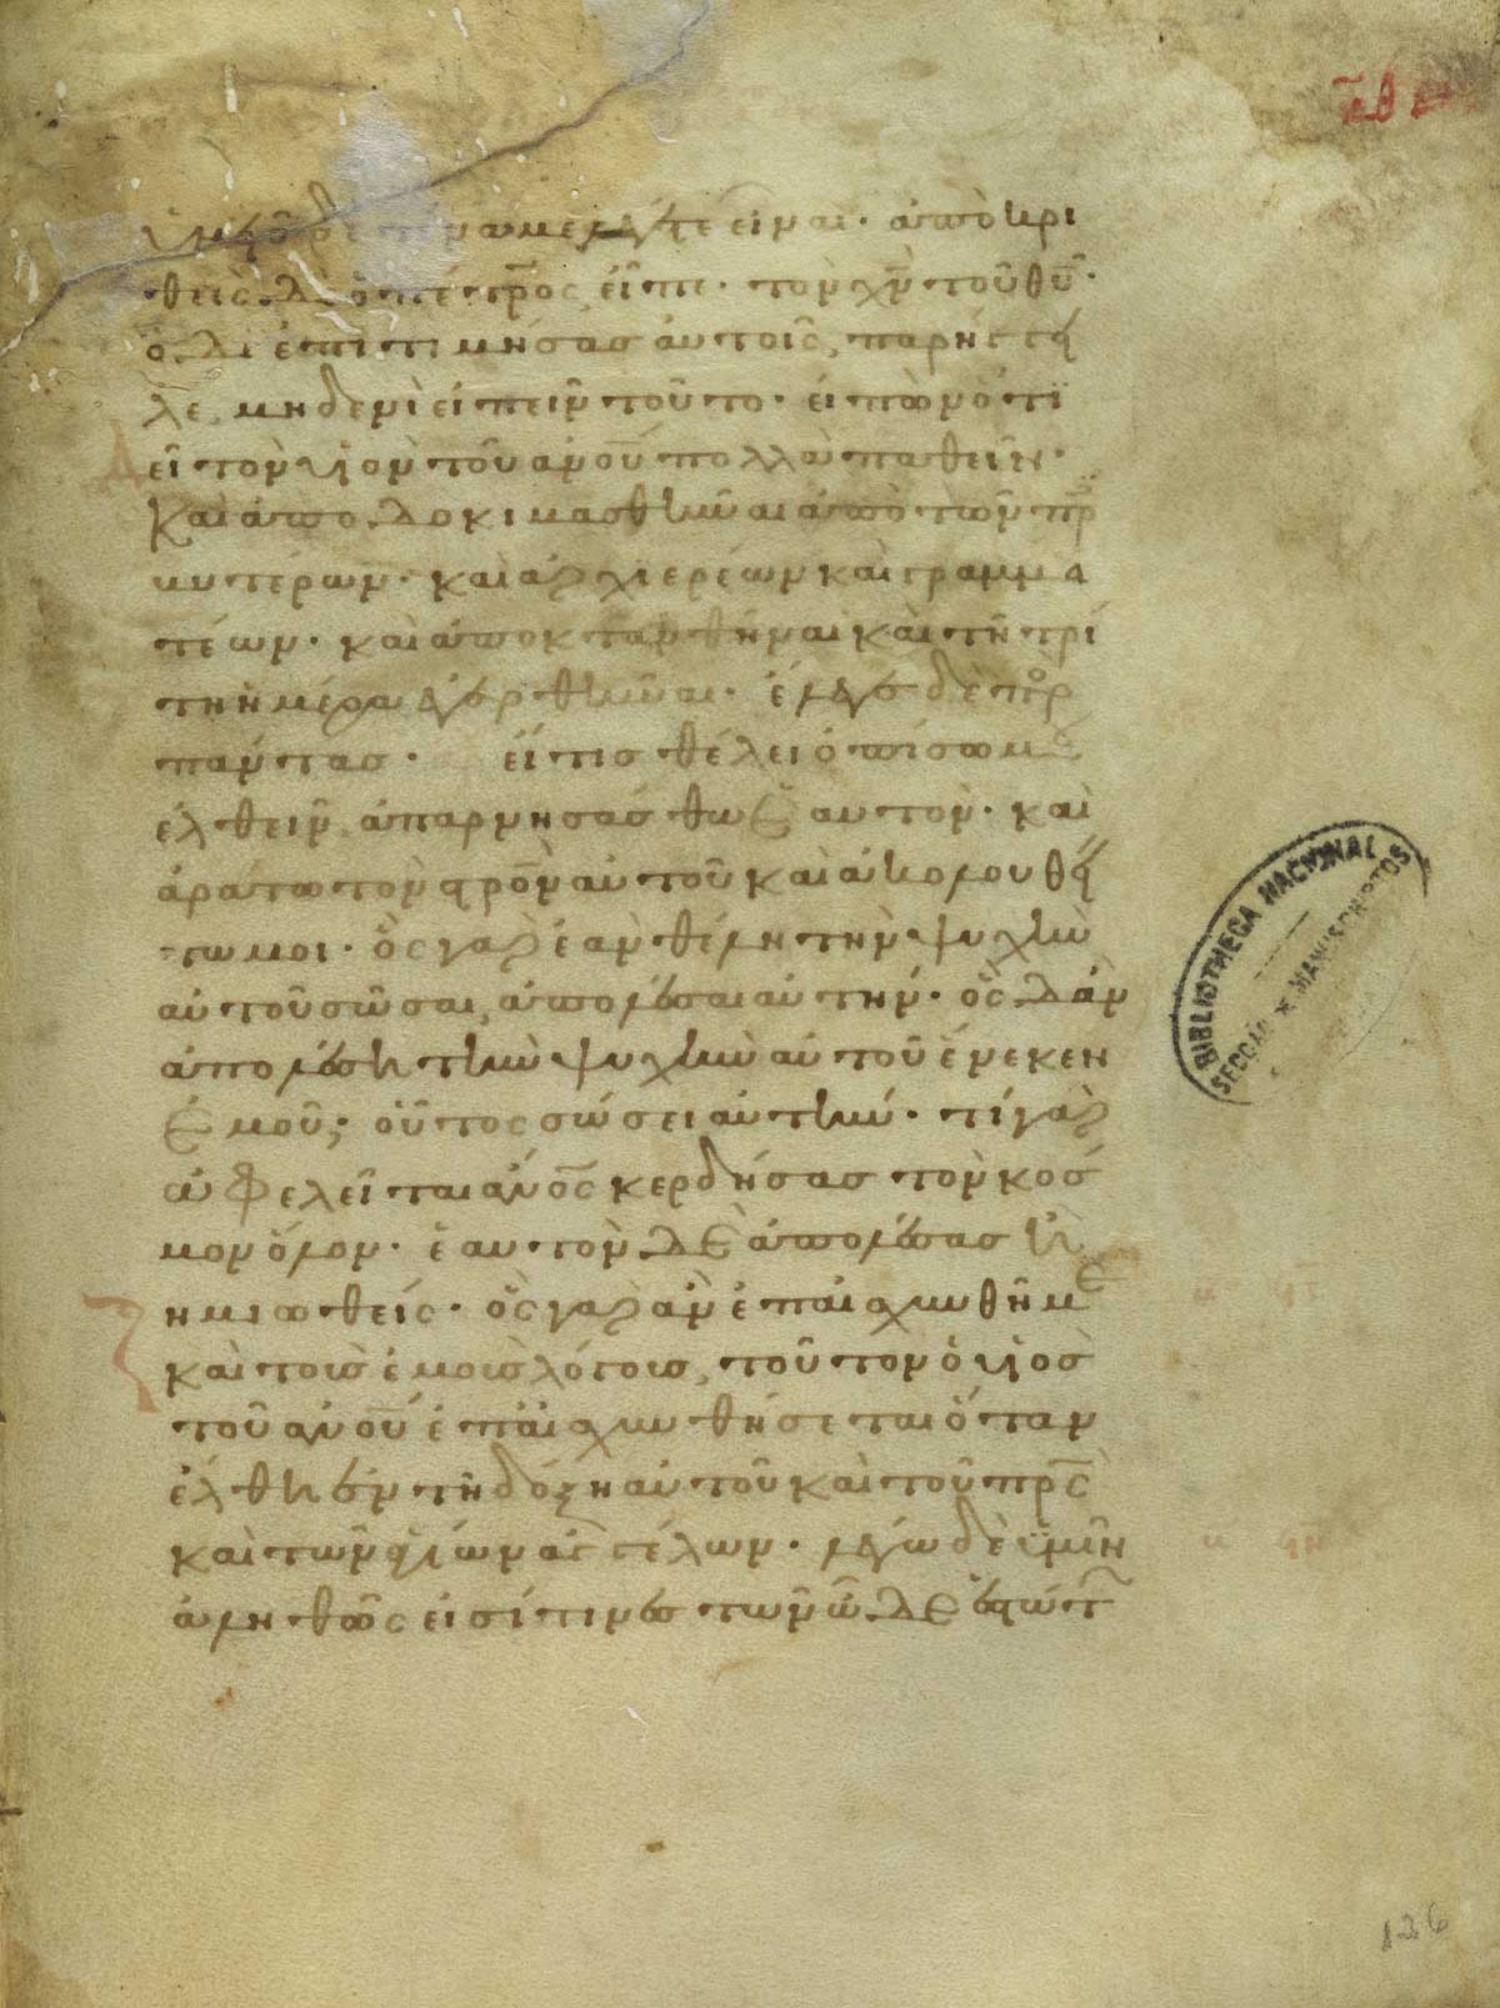 ὑμεῖς δὲ τίνα με λέγετε εἶναι· ἀποκρι
θεὶς δὲ ὁ πέτρος εἶπε· τὸν χν τοῦ θυ·
ὁ δὲ ἐπιτιμήσας αὐτοῖς, παρήγγει
λε μηδενὶ εἰπεῖν τοῦτο· εἰπὼν ὅτι
εῖ τὸν υἱὸν τοῦ ανου πολλὰ παθεῖν·
Καὶ ἀποδοκιμασθῆναι ἀπὸ τῶν πρ
κυτέρων· καὶ ἀρχιερέων καὶ γραμμα
τέων· καὶ ἀποκτανθῆναι καὶ τῇ τρί
τη ἡμέρα ἐγερθῆναι· ἔλεγε δὲ πρ
πάντας· εἴ τις θέλει ὀπίσω μου
ἐλθεῖν ἀπαρνησάσθω ἑαυτὸν· καὶ
ἀράτω τὸν σρον αὐτοῦ καὶ ἀκολουθεί
τω μοι· ὃς γὰρ ἐὰν θέλη τὴν ψυχὴν
αὐτοῦ σῶσαι, ἀπολέσει αὐτήν· ὃς δἂν
ἀπολέσῃ τὴν ψυχὴν αὐτοῦ ἕνεκεν
ἐμοῦ; οὗτος σώσει αὐτήν· τί γὰρ
ὠφελεῖται ανος κερδήσας τὸν κόσ
μον ὅλον· ἑαυτὸν δὲ ἀπολέσας ἢ
ημιωθείς· ὃς γὰρ ἂν ἐπαισχυνθῆ με
καὶ τοὺς ἐμοὺς λόγους, τοῦτον ὁ υἱὸς
τοῦ ανου ἐπαισχυνθήσεται ὅταν
ἔλθῃ ἐν τῆ δόξη αὐτοῦ καὶ τοῦ πρς
καὶ τῶν ἁγίων ἀγγέλων· λέγω δὲ ὑμῖν
ἀληθῶς εἰσί τινες τῶν ὧδε ἑστώτ
BIBLIOTHECA NACIONAL
136